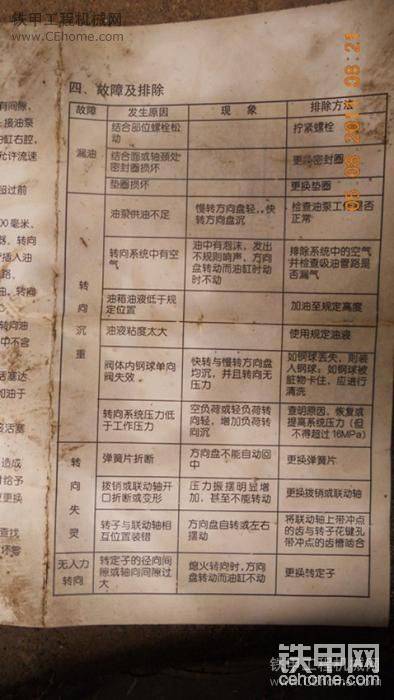 铁甲工程机械网
www.CEhome.com
08:21
四、故障及排除
故障 发生原因 现 象 排除方法
漏油
结合部位螺栓松动 拧紧螺栓
结合面或轴颈处密封圈损坏 更换密封圈
垫圈损坏 更换垫圈
转向沉重
油泵供油不足 慢转方向盘轻，快转方向盘沉 检查油泵工作是否正常
转向系统中有空气 油中有泡沫，发出不规则响声，方向盘转动而油缸时动时不动 排除系统中的空气并检查吸油管路是否漏气
油箱油液低于规定位置 加油至规定高度
油液粘度太大 使用规定油液
阀体内钢球单向阀失效 快转与慢转方向盘均沉，并且转向无压力 如钢球丢失，则装入钢球；如钢球被脏物卡住，应进行清洗
转向系统压力低于工作压力 空负荷或轻负荷转向轻，增加负荷转向沉 查明原因，恢复或提高系统压力（但不得超过16MPa）
转向失灵
弹簧片折断 方向盘不能自动回中 更换弹簧片
拨销或联动轴开口折断或变形 压力振摆明显增加，甚至不能转动 更换拨销或联动轴
转子与联动轴相互位置装错 方向盘自转或左右摆动 将联动轴上带冲点的齿与转子花键孔带冲点的齿槽啮合
无人力转向
转定子的径向间隙或轴向间隙过大 熄火转向时，方向盘转动而油缸不动 更换转定子
有间隙，
接油泵
油缸右腔，
允许流速
超过前
00毫米，
器，转向
插入油
路。
油，转向
转向油
中不含
活塞达
和油于
活塞
造成
时给予
更换
查找
铁甲网
www.cehome.com